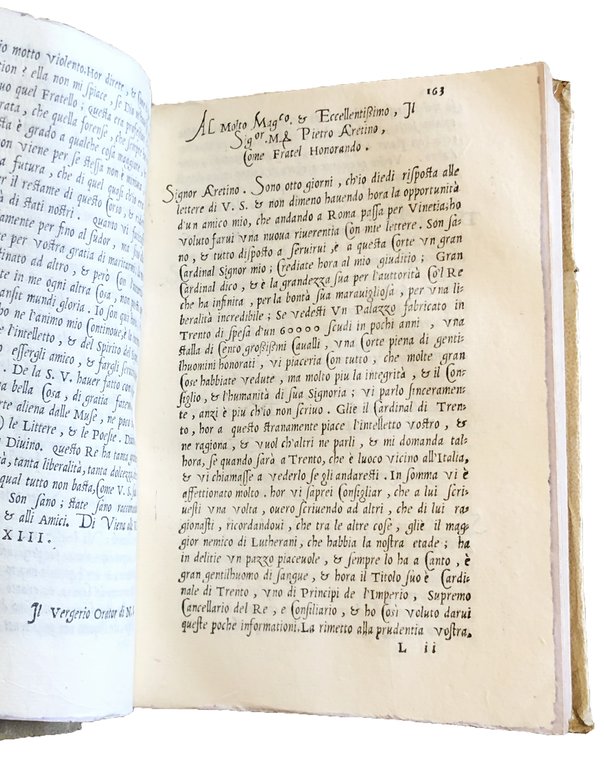 io motto violento. Hor direte, &
tion? ella non mi spiace, se Dio
quel Fratello; questa era prof
rata, che quella forense, che
sta è grado a qualche cosa maggiore
non viene per se stessa non è
futura, che di quel qual
er il restante di questo Corso, è
à di stati nostri. Quanto vi
amente per fino al sudor, ma
per vostra gratia di mariarmi
tinato ad altro, & però Con
te in me ogni altra Cosa, non
ansit mundi gloria. Io son qui
ho ne l'animo mio Continoue, le
l'intelletto, & del Spirito de
o essergli amico, & fargli
. De la S. V. hauer fatto con
a bella Cosa, di gratia
rte aliena dalle Muse, ne poco
) le Littere, & le Poesie. Dam
Diuino. questo Re ha tanta
tà, tanta liberalità, tanta dolcezza
qual tutto non basta, Come V. S.
Son sano; state sano
& alli Amici. Di Viena alli
XIII.
Il Vergerio Orator di N.
163
Al Molto Magco. & Eccellentißimo, Il
Sigor. M. Pietro Aretino,
Come Fratel Honorando.
Signor Aretino. Sono otto giorni, ch'io diedi risposta alle
lettere di V. S. & non dimeno hauendo hora la opportunità
d'un amico mio, che andando a Roma passa per Vinetia, ho
voluto farui vna nuoua riuerentia Con mie lettere. Son sa-
no, & tutto disposto a seruirui, è a questa Corte vn gran
Cardinal Signor mio; Crediate hora al mio giuditio; Gran
Cardinal dico, & è la grandezza sua per l'auttorità Co'l Re
che ha infinita, per la bontà sua marauigliosa, per vna li-
beralità incredibile; Se vedesti Vn Palazzo fabricato in
Trento di spesa d'un 60000 scudi in pochi anni, vna
stalla di Cento großißimi Caualli, vna Corte piena di genti-
lhuomini honorati, vi piaceria Con tutto, che molte gran
Cose habbiate vedute, ma molto piu la integrità, & il Con-
siglio, & l'humanità di sua Signoria; vi parlo sinceramen-
te, anzi è piu ch'io non scriuo. Glie il Cardinal di Tren-
to, hor a questo stranamente piace l'intelletto vostro, &
ne ragiona, & vuol ch'altri ne parli, & mi domanda tal-
hora, se quando sarà a Trento, che è luoco vicino all'Italia,
& vi chiamasse a vederlo se gli andaresti. In somma vi è
affettionato molto. hor vi saprei Consigliar, che a lui scri-
uesti vna volta, ouero scriuendo ad altri, che di lui ra-
gionasti, ricordandoui, che tra le altre cose, gliè il mag-
gior nemico di Lutherani, che habbia la nostra etade; ha
in delitie vn pazzo piaceuole, & sempre lo ha a Canto, è
gran gentilhuomo di sangue, & hora il Titolo suo è Cardi-
nale di Trento, vno di Principi de l'Imperio, Supremo
Cancellario del Re, e Consiliario, & ho Così voluto darui
queste poche informationi. La rimetto alla prudentia vostra.
L ii